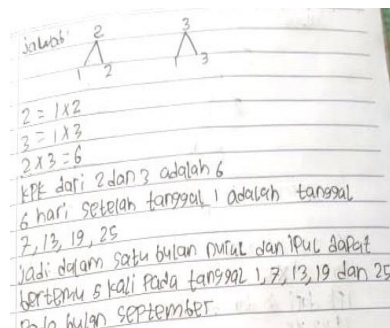 Jawab:
2 3
1 2 1 3
2 = 1x2
3 = 1x3
2 x 3 = 6
KPK dari 2 dan 3 adalah 6
6 hari setelah tanggal 1 adalah tanggal
7, 13, 19, 25
Jadi dalam satu bulan nurul dan ipul dapat
bertemu 5 kali Pada tanggal 1, 7, 13, 19 dan 25
Pada bulan September